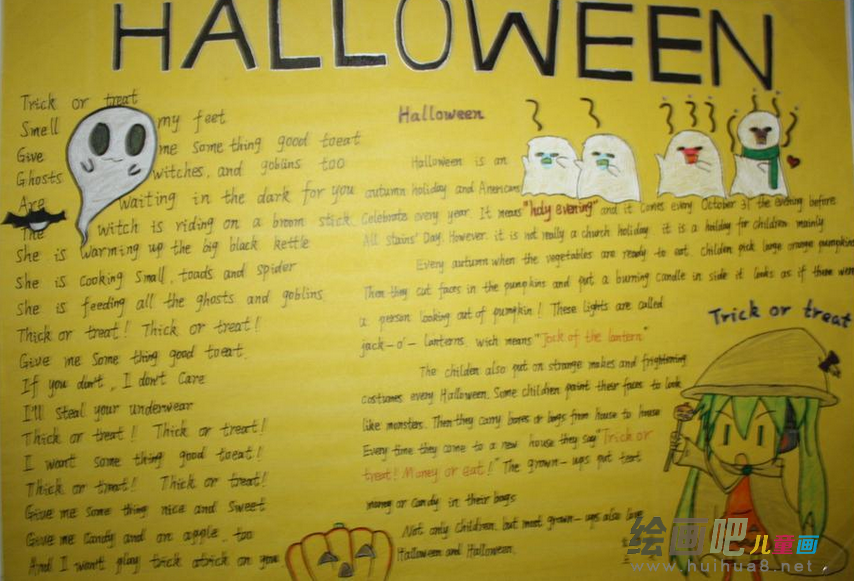 HALLOWEEN
Trick or treat
Smell my feet
Give me some thing good toeat
Ghosts witches, and goblins too
Are waiting in the dark for you
The witch is riding on a broom stick
She is warming up the big black kettle
She is cooking small, toads and spider
She is feeding all the ghosts and goblins
Thick or treat! Thick or treat!
Give me some thing good toeat
If you don't, I don't care
I'll steal your underwear
Thick or treat! Thick or treat!
I want some thing good toeat!
Thick or treat! Thick or treat!
Give me some thing nice and sweet
Give me candy and an apple, too
And I won't play trick on you
Halloween
Halloween is an
autumn holiday and Americans
Celebrate every year. It means "holy evening" and it comes every October 31 the evening before
All stains' Day. However, it is not really a church holiday it is a holiday for children mainly
Every autumn when the vegetables are ready to eat children pick large orange pumpkins
Then they cut faces in the pumpkins and put a burning candle in side it looks as if there were
a person looking out of pumpkin! These lights are called
jack-o'-lanterns, wich means "Jack of the lantern"
The childen also put on strange makes and frightening
costumes every Halloween. Some children paint their faces to look
like monsters. Then they carry boxes or bags from house to house
Every time they come to a new house they say "Trick or
treat! Money or eat!" The grown-ups put
money or candy in their bags
Not only children, but most grown-ups also love
Halloween and Halloween.
Trick or treat
绘画吧儿童画
www.huihua8.net